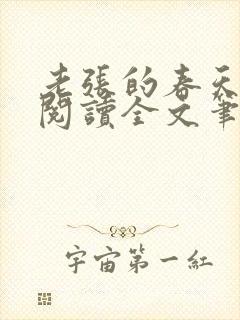 老張的春天
閱讀全文筆
宇宙第一紅